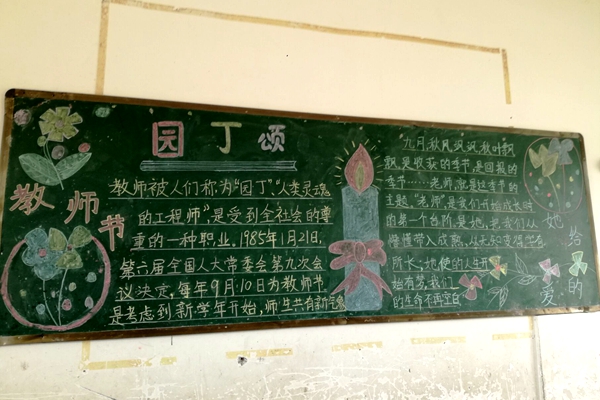 园丁颂
教师节
教师被人们称为“园丁”“人类灵魂
的工程师”,是受到全社会的尊
重的一种职业。1985年1月21日,
第六届全国人大常委会第九次会
议决定,每年9月10日为教师节.
是考虑到新学年开始,师生共有新气象
九月秋风飒飒,秋叶飘
飘,是收获的季节,是回报的
季节……老师,就是这季节的
主题“老师”是我们开始成长时
的第一个台阶,是她,把我们从
懵懂带入成熟,从无知变得学有
所长;她,使的人生开
始有爱,我们
的生命不再空白
她给的爱